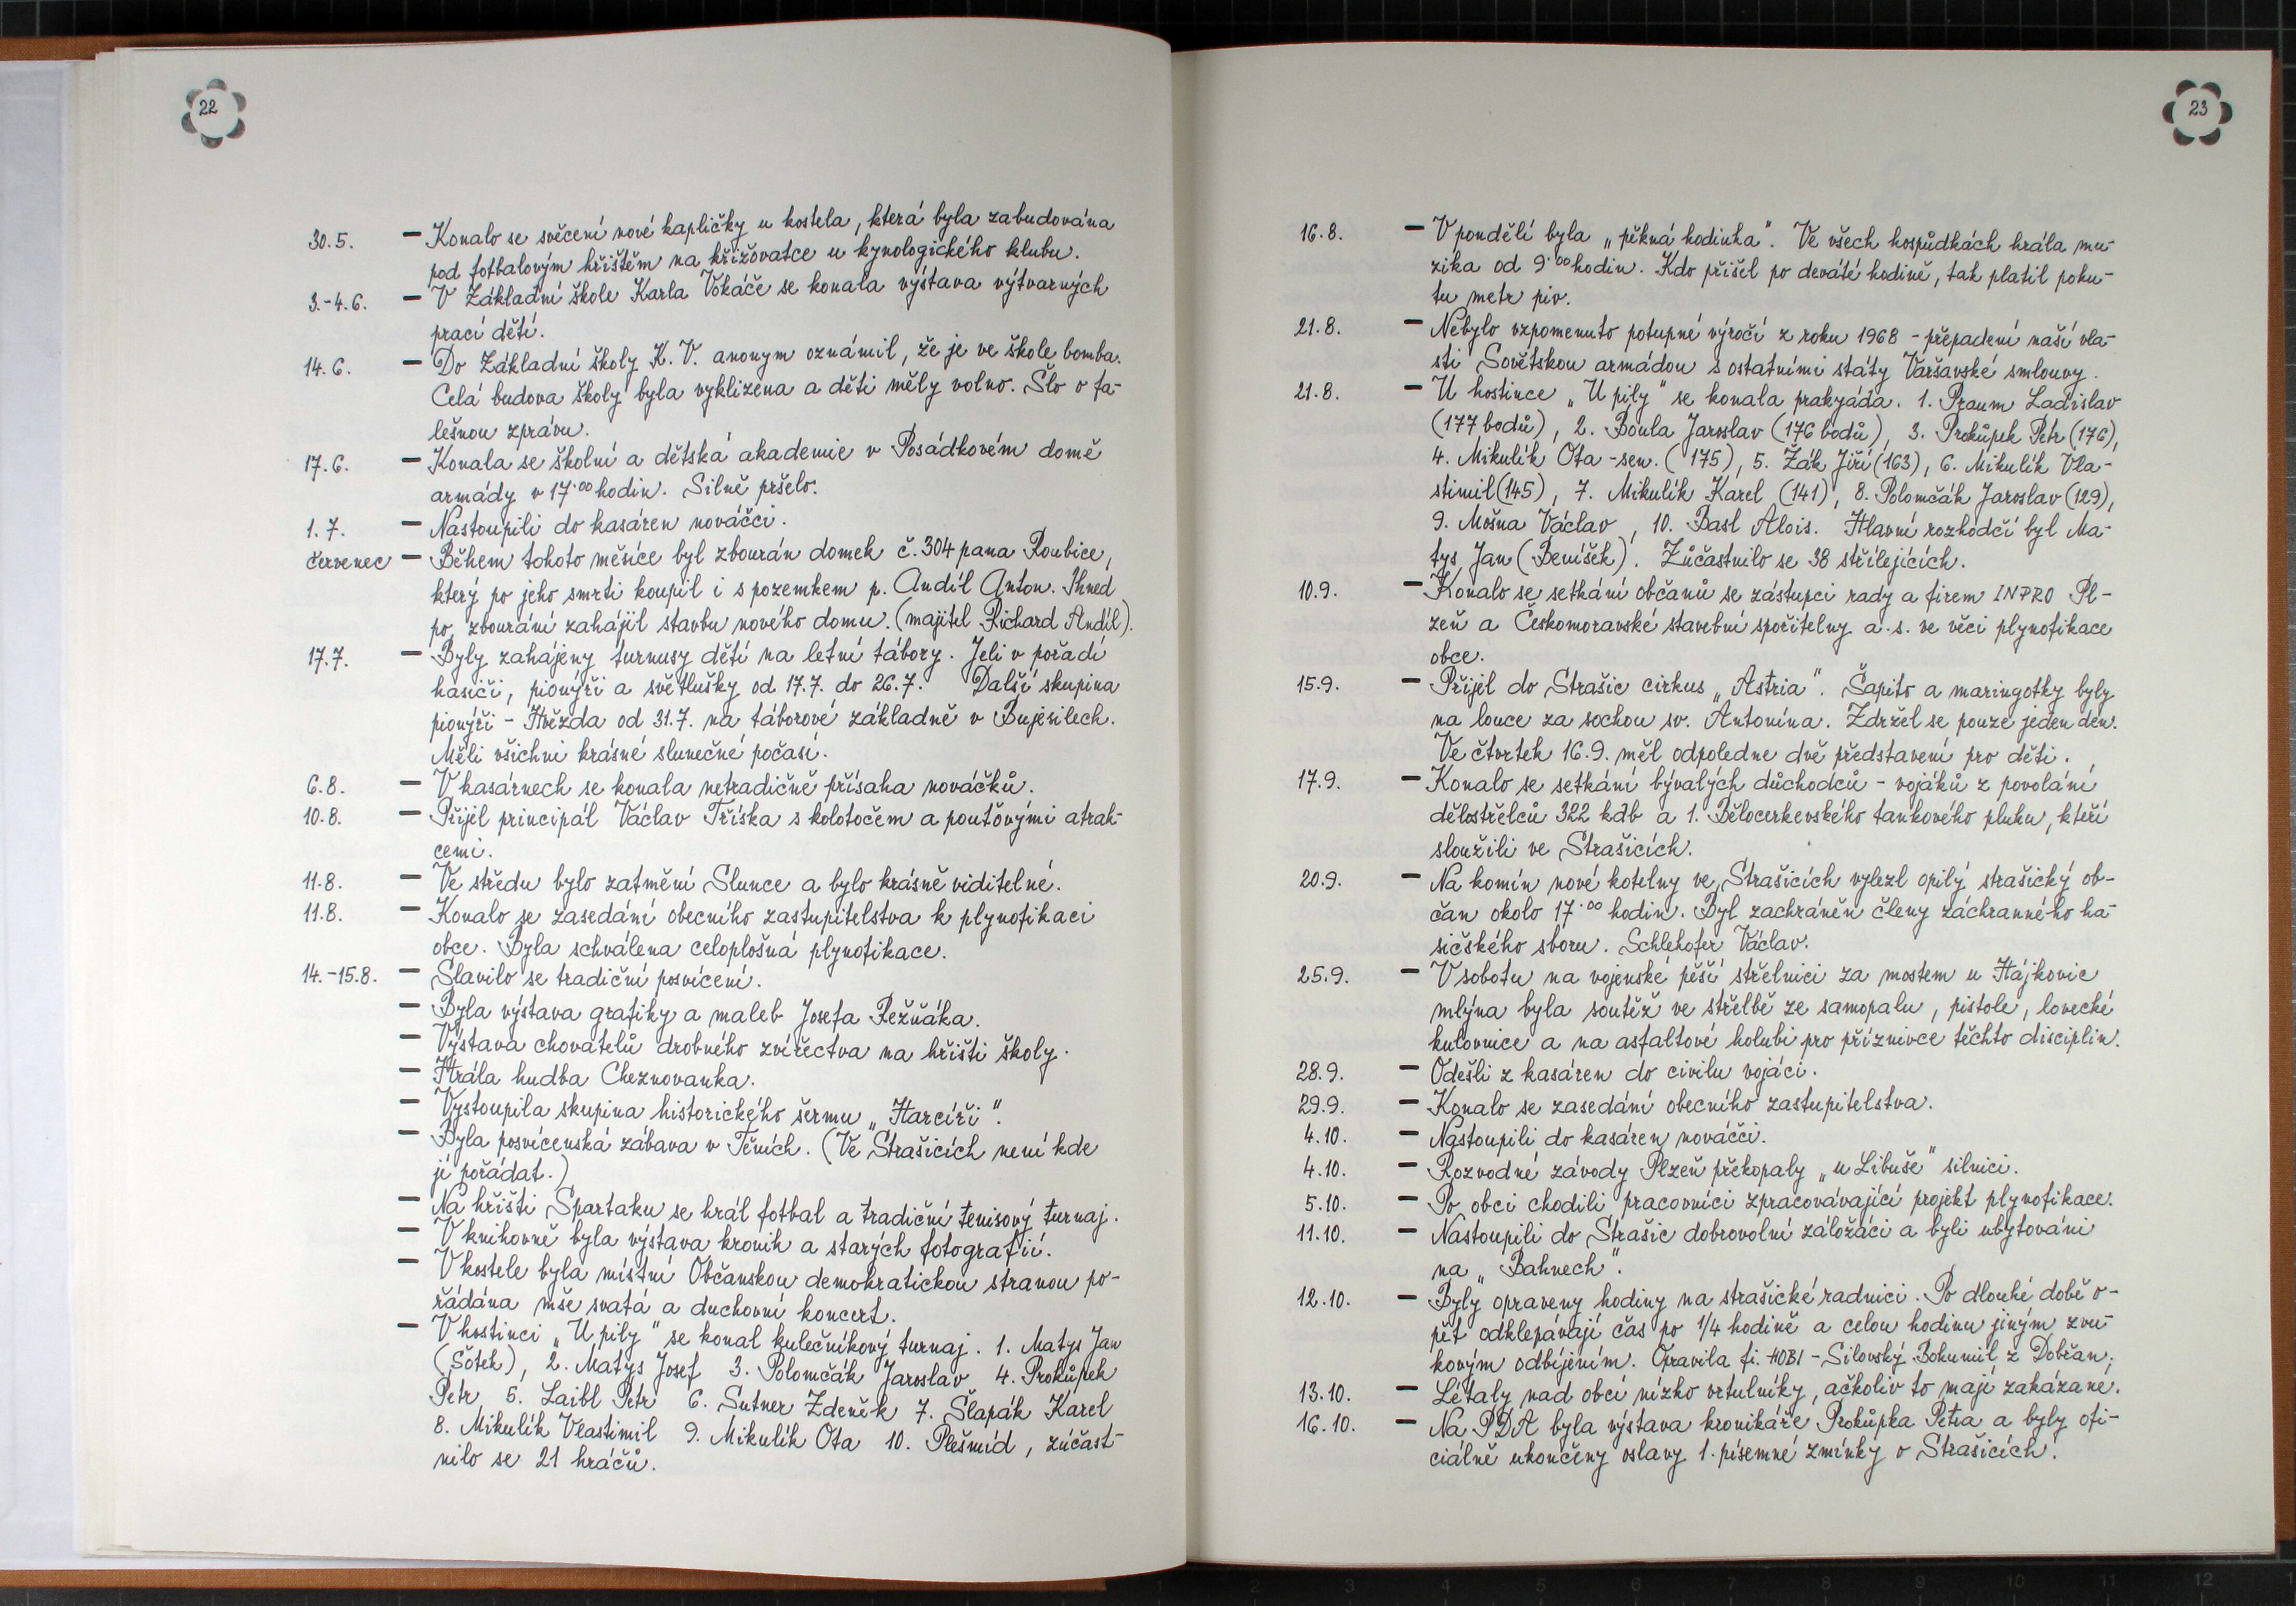 22
30.5. – Konalo se svěcení nové kapličky u kostela, která byla zabudována
pod fotbalovým hřištěm na křižovatce u kynologického klubu.
3.-4.6. – V Základní škole Karla Vokáče se konala výstava výtvarných
prací dětí.
14.6. – Do Základní školy K. V. anonym oznámil, že je ve škole bomba.
Celá budova školy byla vyklizena a děti měly volno. Šlo o fa-
lešnou zprávu.
17.6. – Konala se školní a dětská akademie v Posádkovém domě
armády v 17.00 hodin. Silně pršelo.
1.7. – Nastoupili do kasáren nováčci.
červenec – Během tohoto měsíce byl zbourán domek č. 304 pana Roubice,
který po jeho smrti koupil i s pozemkem p. Andíl Anton. Ihned
po zbourání zahájil stavbu nového domu. (majitel Richard Andíl).
17.7. – Byly zahájeny turnusy dětí na letní tábory. Jeli v pořadí
hasiči, pionýři a světlušky od 17.7. do 26.7. Další skupina
pionýři - Hvězda od 31.7. na táborové základně v Bujesilech.
Měli všichni krásné slunečné počasí.
6.8. – V kasárnech se konala netradičně přísaha nováčků.
10.8. – Přijel principál Václav Tříska s kolotočem a pouťovými atrak-
cemi.
11.8. – Ve středu bylo zatmění Slunce a bylo krásně viditelné.
11.8. – Konalo se zasedání obecního zastupitelstva k plynofikaci
obce. Byla schválena celoplošná plynofikace.
14.-15.8. – Slavilo se tradiční posvícení.
– Byla výstava grafiky a maleb Josefa Režňáka.
– Výstava chovatelů drobného zvířectva na hřišti školy.
– Hrála hudba Cheznovanka.
– Vystoupila skupina historického šermu „Harcíři".
– Byla posvícenská zábava v Těních. (Ve Strašicích není kde
ji pořádat.)
– Na hřišti Spartaku se hrál fotbal a tradiční tenisový turnaj.
– V knihovně byla výstava kronik a starých fotografií.
– V kostele byla místní Občanskou demokratickou stranou po-
řádána mše svatá a duchovní koncert.
– V hostinci „U pily" se konal kulečníkový turnaj. 1. Matys Jan
(Šotek), 2. Matys Josef 3. Polomčák Jaroslav 4. Prokůpek
Petr 5. Laibl Petr 6. Sutner Zdeněk 7. Šlapák Karel
8. Mikulík Vlastimil 9. Mikulík Ota 10. Plešmíd, zúčast-
nilo se 21 hráčů.
23
16.8. – V pondělí byla „pěkná hodinka". Ve všech hospůdkách hrála mu-
zika od 9.00 hodin. Kdo přišel po deváté hodině, tak platil poku-
tu metr piv.
21.8. – Nebylo vzpomenuto potupné výročí z roku 1968 - přepadení naší vla-
sti Sovětskou armádou s ostatními státy Varšavské smlouvy.
21.8. – U hostince „U pily" se konala prakyáda. 1. Praum Ladislav
(177 bodů), 2. Boula Jaroslav (176 bodů), 3. Prokůpek Petr (176),
4. Mikulík Ota - sen. (175), 5. Žák Jiří (163), 6. Mikulík Vla-
stimil (145), 7. Mikulík Karel (141), 8. Polomčák Jaroslav (129),
9. Mošna Václav, 10. Basl Alois. Hlavní rozhodčí byl Ma-
tys Jan (Beníšek). Zúčastnilo se 38 střílejících.
10.9. – Konalo se setkání občanů se zástupci rady a firem INPRO Pl-
zeň a Českomoravské stavební spořitelny a.s. ve věci plynofikace
obce.
15.9. – Přijel do Strašic cirkus „Astria". Šapito a maringotky byly
na louce za sochou sv. Antonína. Zdržel se pouze jeden den.
Ve čtvrtek 16.9. měl odpoledne dvě představení pro děti.
17.9. – Konalo se setkání bývalých důchodců - vojáků z povolání
dělostřelců 322 kdb a 1. Bělocerkevského tankového pluku, kteří
sloužili ve Strašicích.
20.9. – Na komín nové kotelny ve Strašicích vylezl opilý strašický ob-
čan okolo 17.00 hodin. Byl zachráněn členy záchranného ha-
sičského sboru. Schlehofer Václav.
25.9. – V sobotu na vojenské pěší střelnici za mostem u Hájkovic
mlýna byla soutěž ve střelbě ze samopalu, pistole, lovecké
kulovnice a na asfaltové holubi pro příznivce těchto disciplin.
28.9. – Odešli z kasáren do civilu vojáci.
29.9. – Konalo se zasedání obecního zastupitelstva.
4.10. – Nastoupili do kasáren nováčci.
4.10. – Rozvodné závody Plzeň překopaly „u Libuše" silnici.
5.10. – Po obci chodili pracovníci zpracovávající projekt plynofikace.
11.10. – Nastoupili do Strašic dobrovolní záložáci a byli ubytováni
na „Bahnech".
12.10. – Byly opraveny hodiny na strašické radnici. Po dlouhé době o-
pět odklepávají čas po 1/4 hodině a celou hodinu jiným zvu-
kovým odbíjením. Opravila fi. HOBI - Silovský Bohumil z Dobřan.
13.10. – Létaly nad obcí nízko vrtulníky, ačkoliv to mají zakázané.
16.10. – Na PDA byla výstava kronikáře Prokůpka Petra a byly ofi-
ciálně ukončeny oslavy 1. písemné zmínky o Strašicích.